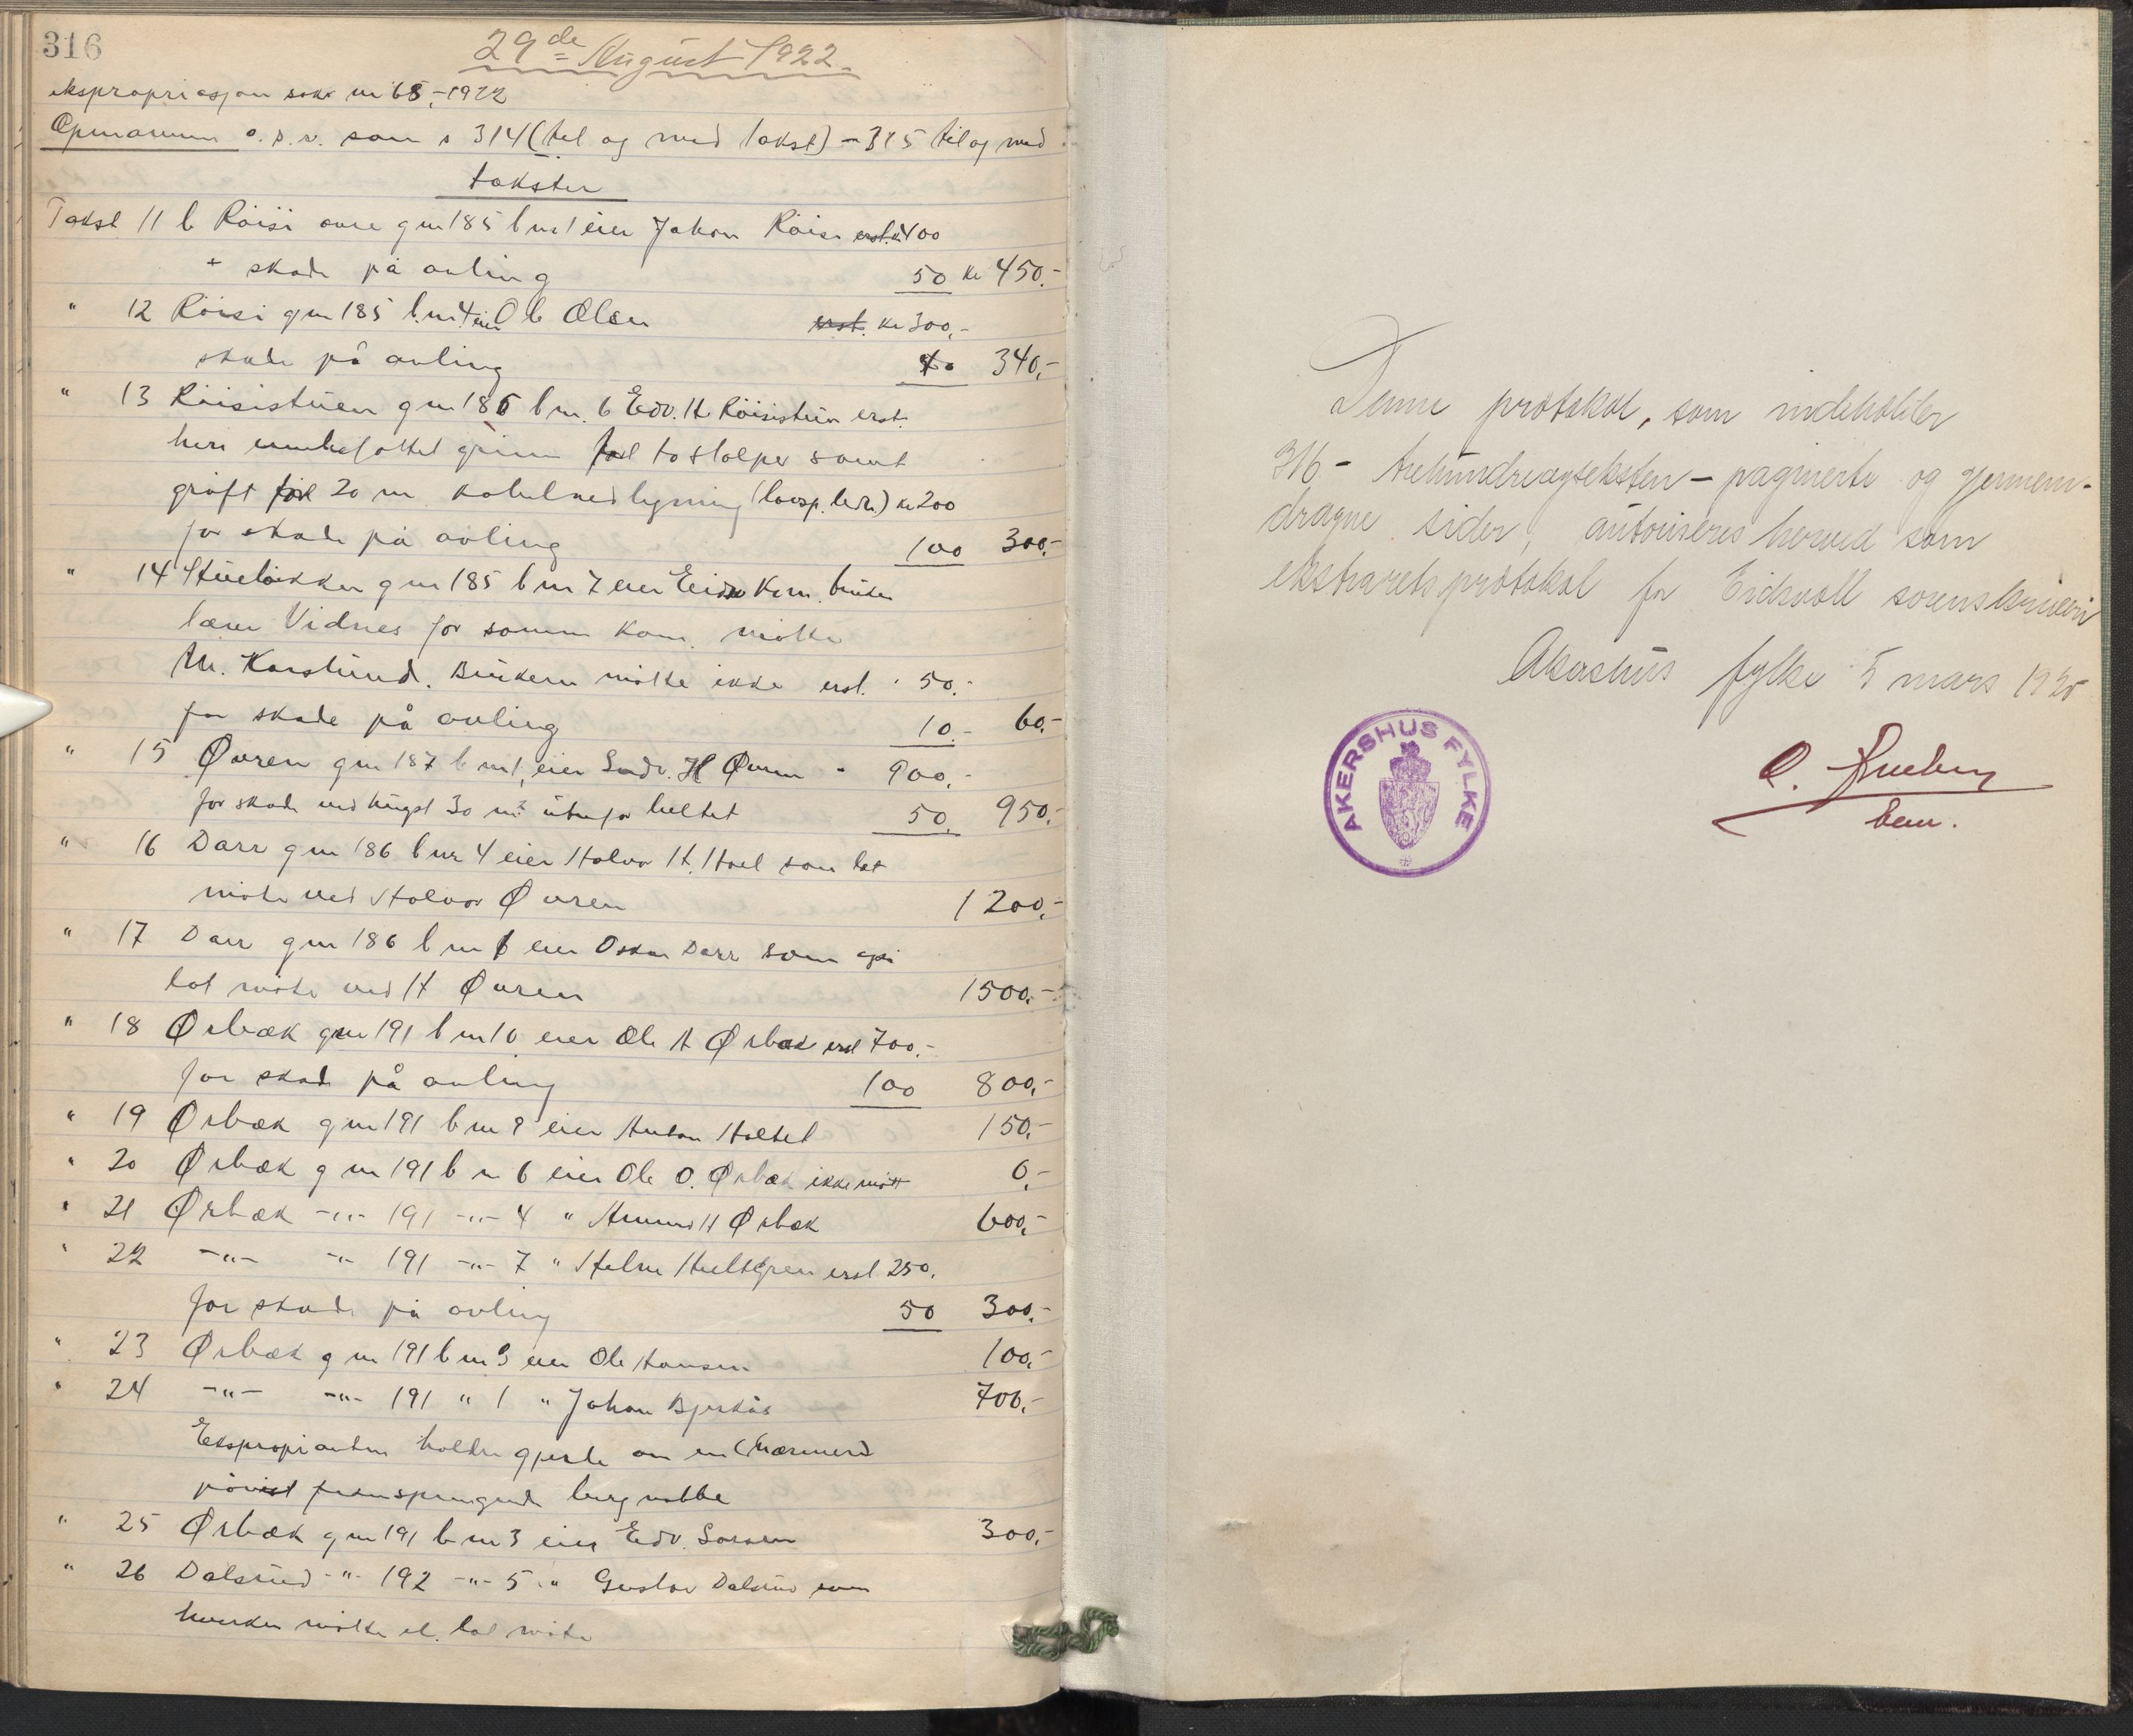 316
29de August 1922.
ekspropriasjon sak nr 68,-1922
Opmannen o.s.v. som s 314 (til og med takst) - 315 til og med
takster
Takst 11 b Röisi övre gnr 185 bnr 1 eier Johan Röisi erst. kr 400
+ skade på avling 50 kr 450.-
" 12 Röisi gnr 185 bnr 4 eier Ole Olsen erst. kr 300,-
skade på avling 40 340,-
" 13 Röisistuen gnr 185 bnr. 6 Edv. H. Röisistuen erst.
heri innbefattet to stolper samt
gröft 20 m kabelnedlegning (lavsp. ledn.) kr 200
for skade på avling 100 300.-
" 14 Stuelökken gnr 185 bnr 7 eier Eidsv Kom. bruker
lærer Vidnes for samme kom. mötte
M. Karslund. Brukeren mötte ikke erst. " 50.-
for skade på avling 10.- 60.-
" 15 Øvren gnr 187 bnr 1, eier H Øvren " 900.-
for skade ved hugst 30 m² utenfor beltet 50. 950.-
" 16 Darr gnr 186 bnr 4 eier Halvor H. Hoel som lot
möte ved Halvor Øvren 1200.-
" 17 Darr gnr 186 bnr 1 eier Oskar Darr som også
lot möte ved H Øvren 1500.-
" 18 Ørbæk gnr 191 bnr 10 eier Ole A Ørbæk erst 700.-
for skade på avling 100 800.-
" 19 Ørbæk gnr 191 bnr 9 eier Anton Holtet 150.-
" 20 Ørbæk gnr 191 bnr 6 eier Ole O. Ørbæk ikke mött 0.-
" 21 Ørbæk -"- 191 -"- 4 " Amund H Ørbæk 600.-
" 22 -"- -"- 191 -"- 7 " Hultgren erst 250.
for skade på avling 50 300.-
" 23 Ørbæk gnr 191 bnr 9 eier Ole Hansen 100.-
" 24 -"- -"- 191 " 1 " Johan Bjerkås 700.-
Ekspropianten holder gjerde om en (nærmere)
påvist fremspringende bergnabbe
" 25 Ørbæk gnr 191 bnr 3 eier Edv. Larsen 300.-
" 26 Dalsrud -"- 192 -"- 5 " Gustav Dalsrud som
hverken mötte el. lot möte
Denne protokol, som indeholder
316 - trehundreogseksten - paginerte og gjennem-
dragne sider, autoriseres herved som
ekstraretsprotokol for Eidsvoll sorenskriveri
Akershus fylke 5 mars 1920
AKERSHUS FYLKE